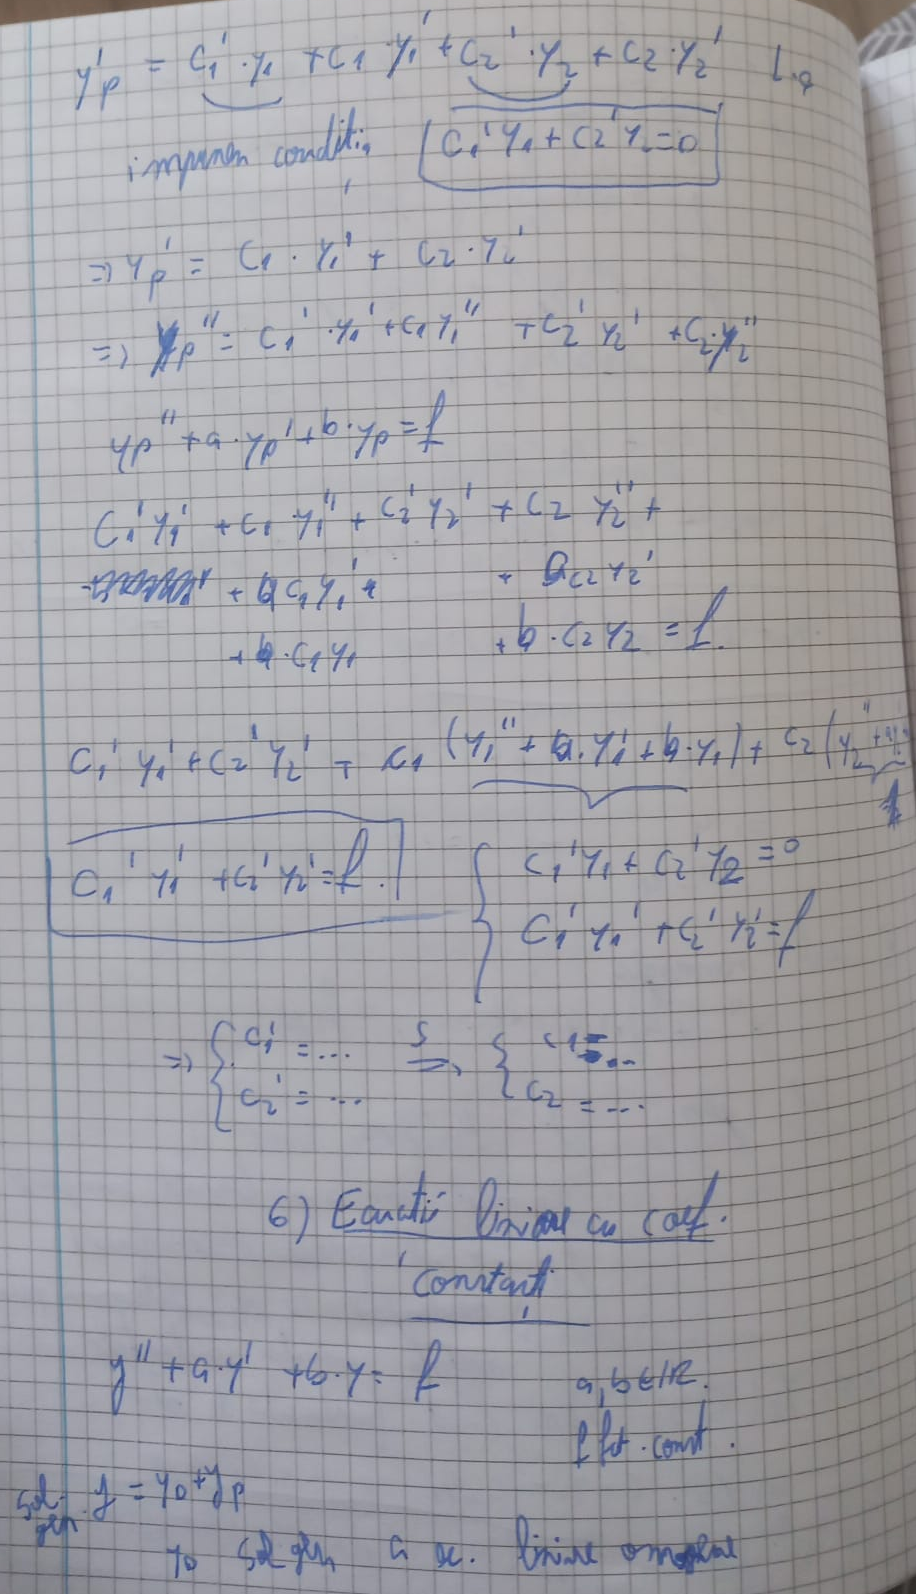 y'p = C1'·y1 + C1·y1' + C2'·y2 + C2·y2'
impunem condiția C1'y1 + C2'y2 = 0
=> yp' = C1·y1' + C2·y2'
=> yp'' = C1'·y1' + C1y1'' + C2'y2' + C2·y2''
yp'' + a·yp' + b·yp = f
C1'y1' + C1·y1'' + C2'y2' + C2 y2'' +
+ a C1y1' + + a C2y2'
+ b·C1y1 + b·C2y2 = f.
C1'y1' + C2'y2' + C1(y1'' + a·y1' + b·y1) + C2(y2'' +
C1'y1' + C2'y2' = f.
C1'y1 + C2'y2 = 0
C1'y1' + C2'y2' = f
=> { C1' = ... ∫ => { C1 = ...
C2' = ... C2 = ...
6) Ecuatii liniare cu coef.
constanți
y'' + a·y' + b·y = f a, b ∈ R.
f fct. cont.
Sol. gen. y = y0 + yp
y0 sol gen a ec. liniare omogene